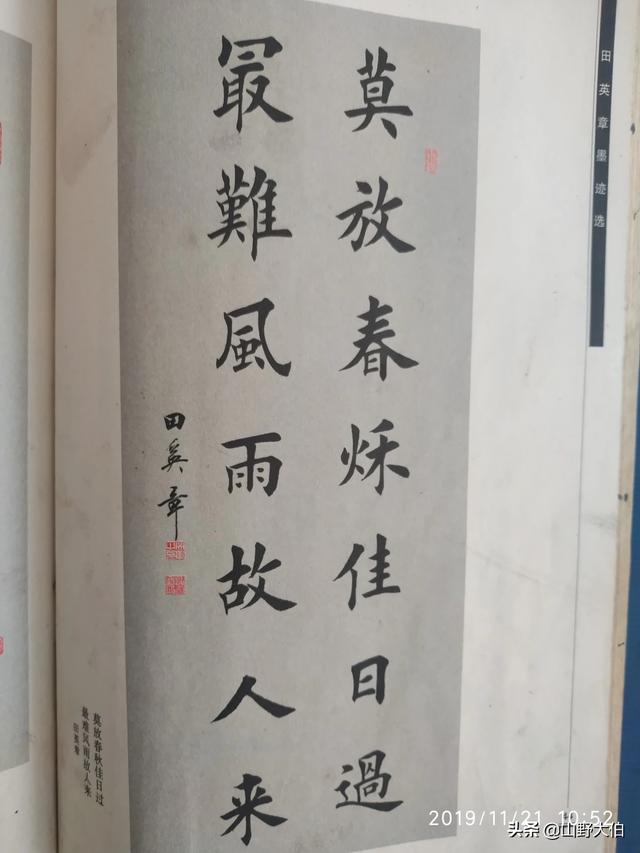 莫放春秌佳日過
最難風雨故人来
田英章
田英章墨迹选
莫放春秋佳日过
最难风雨故人来
田英章
2019/11/21 10:52
头条 @山野大伯